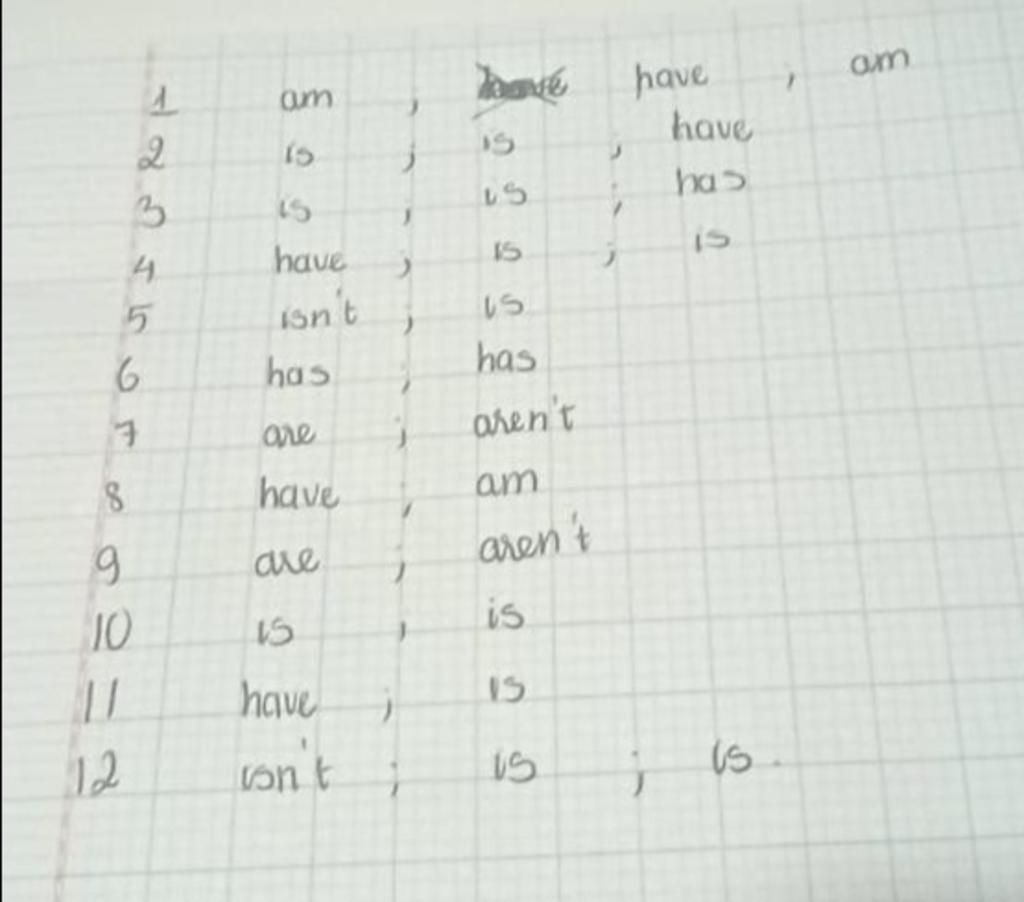 1 am , have , am
2 is ; is , have
3 is , is ; has
4 have ; is ; is
5 isn't ; is
6 has ; has
7 are ; aren't
8 have , am
9 are ; aren't
10 is , is
11 have ; is
12 isn't ; is ; is.